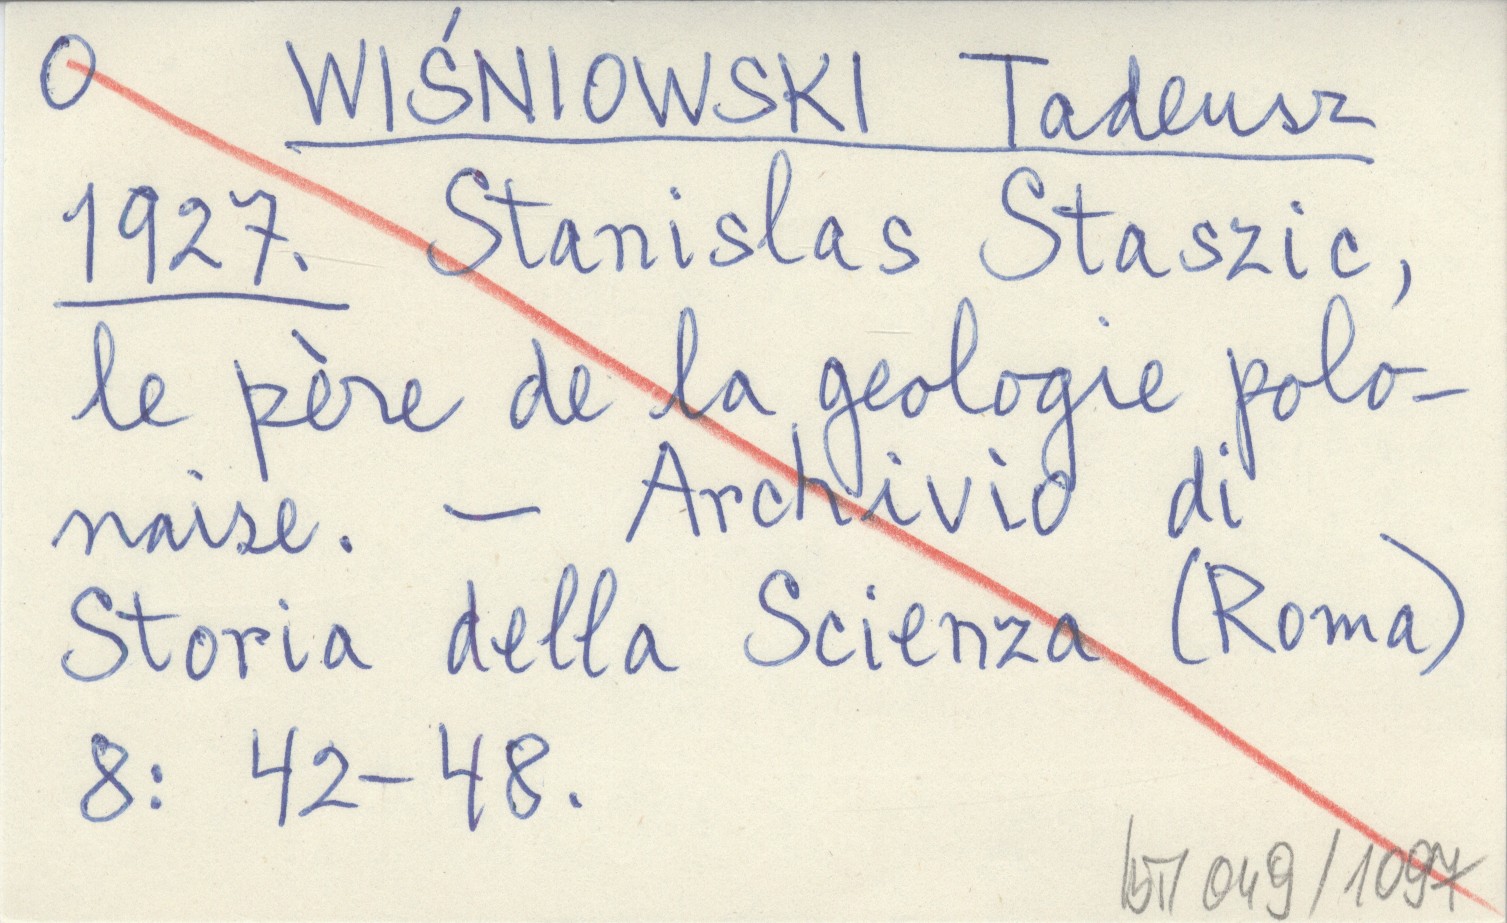 O WIŚNIOWSKI Tadeusz
1927. Stanislas Staszic,
le père de la geologie polo-
naise. — Archivio di
Storia della Scienza (Roma)
8: 42-48.
049/1097